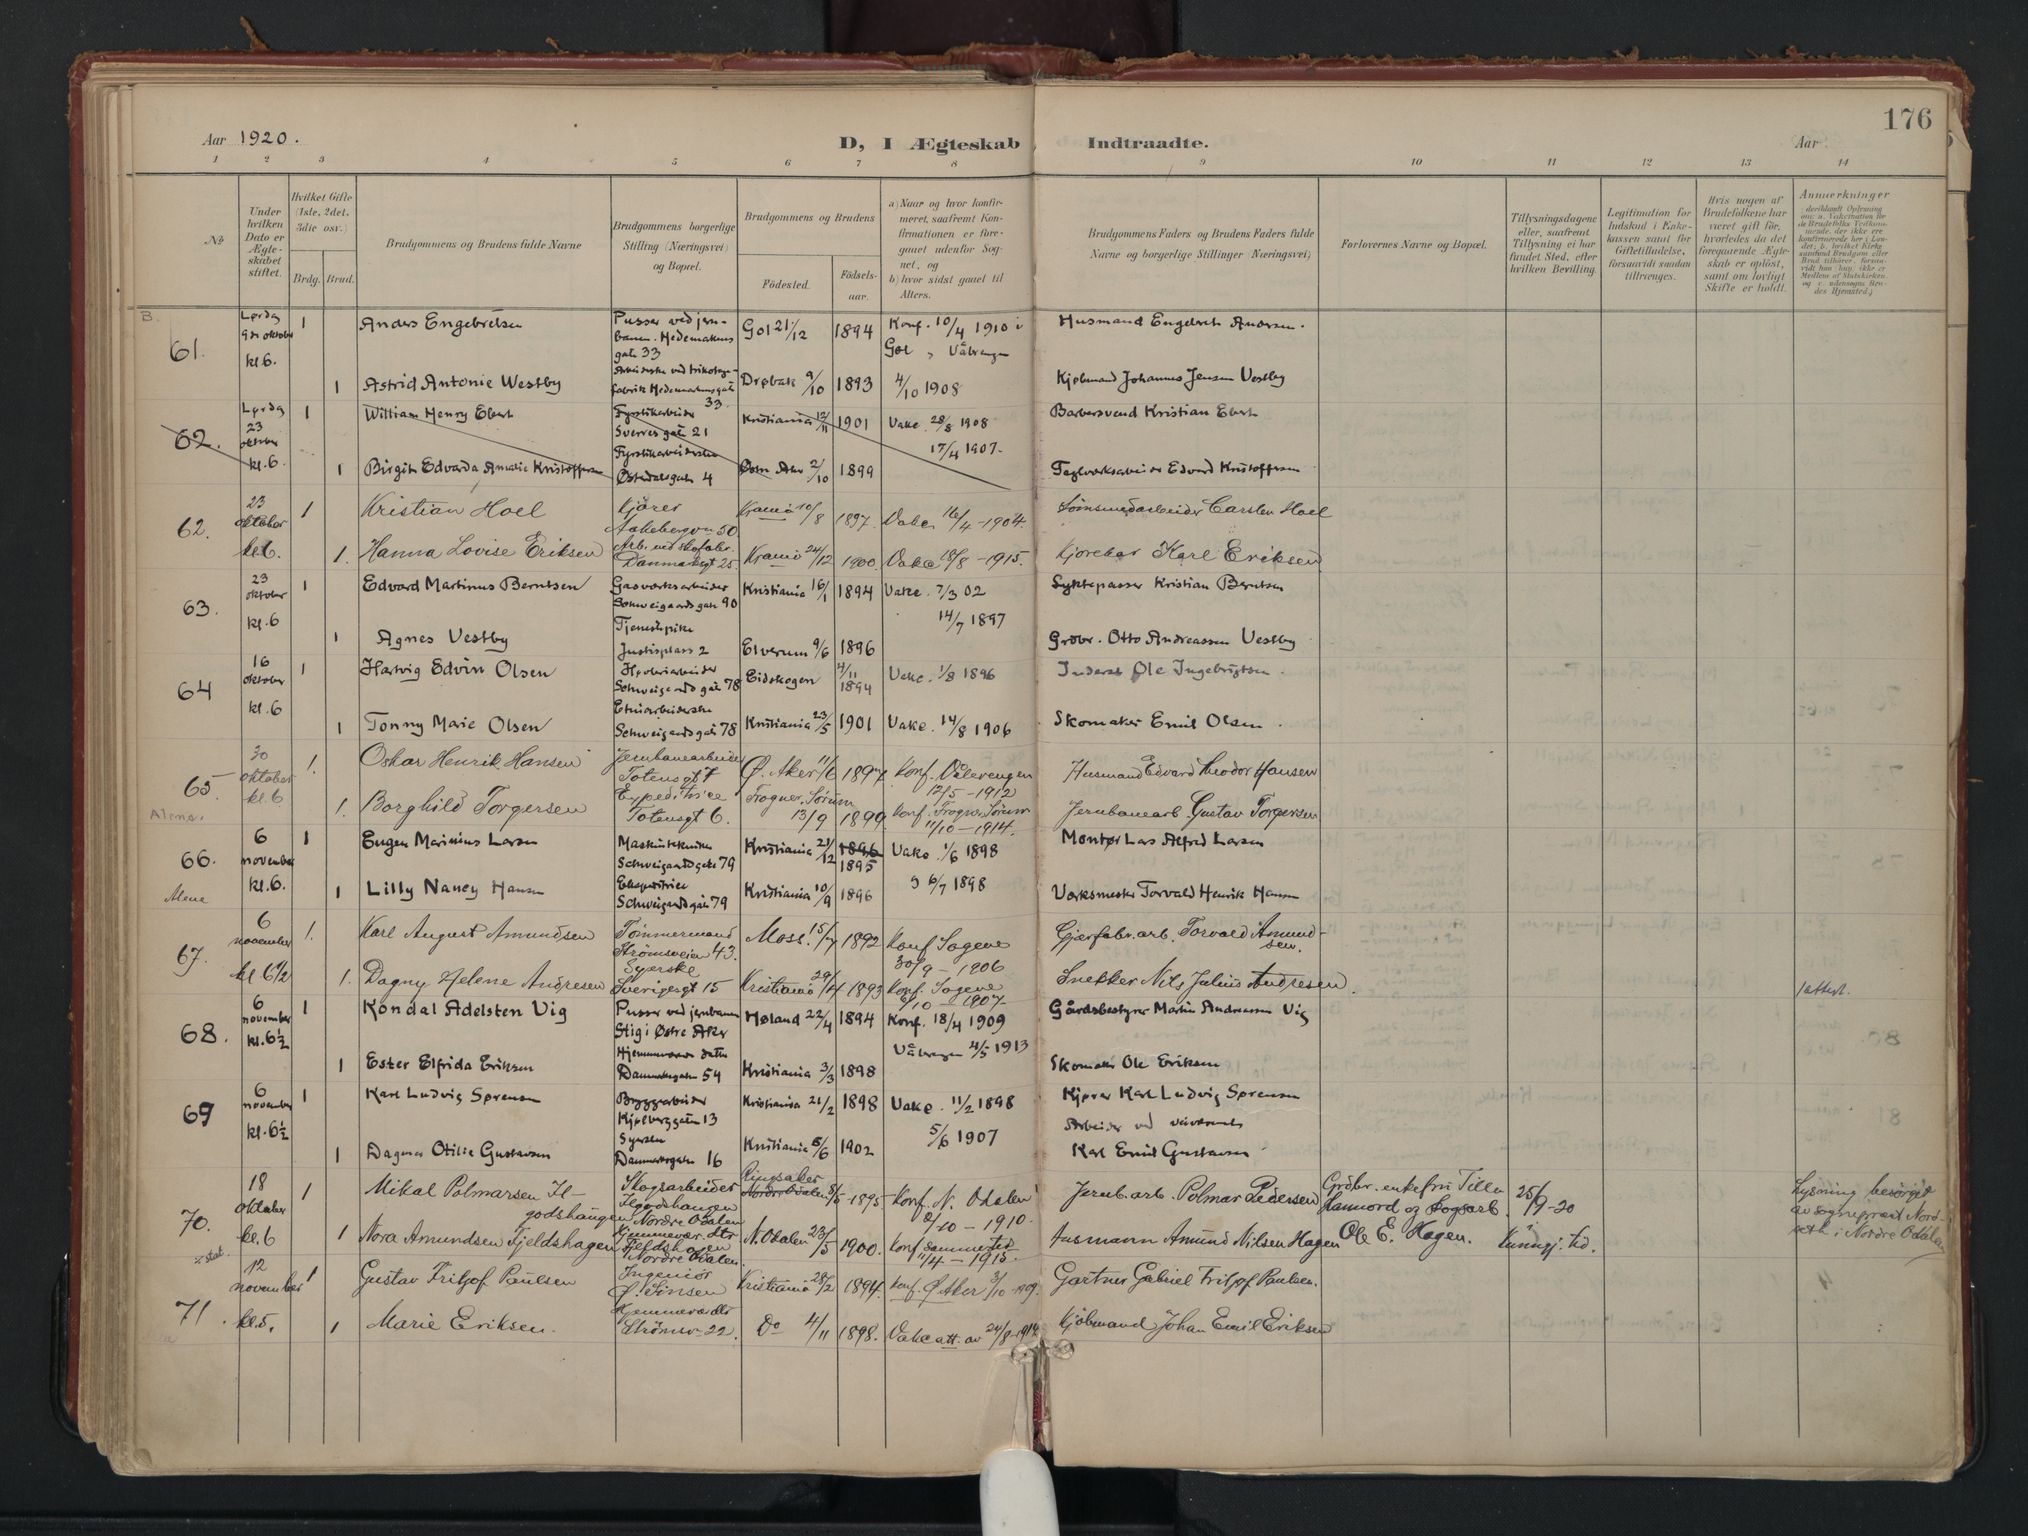 176
Aar 1920.
D, I Ægteskab Indtraadte.
Aar
1 2 3 4 5 6 7 8 9 10 11 12 13 14
No
Under hvilken Dato er Ægteskabet stiftet.
Hvilket Gifte (1ste, 2det, 3die osv.)
Brdg. Brud.
Brudgommens og Brudens fulde Navne
Brudgommens borgerlige Stilling (Næringsvei) og Bopæl.
Brudgommens og Brudens
Fødested.
Fødsels-aar.
a) Naar og hvor konfirmeret, saafremt Konfirmationen er foregaaet udenfor Sognet, og
b) hvor sidst gaaet til Alters.
Brudgommens Faders og Brudens Faders fulde Navne og borgerlige Stillinger Næringsvei)
Forlovernes Navne og Bopæl.
Tillysningsdagene eller, saafremt Tillysning ei har fundet Sted, efter hvilken Bevilling.
Legitimation for Indskud i Enkekassen samt for Giftetilladelse, forsaavidt saadan tiltrænges.
Hvis nogen af Brudefolkene har været gift før, hvorledes da det foregaaende Ægteskab er opløst, samt om lovligt Skifte er holdt.
Anmærkninger
B.
61. Lørdag 9de oktober kl. 6.
1 Anders Engebretsen Pusser ved jernbanen. Hedemarkens gate 33 Gol 21/12 1894 Konf. 10/4 1910 i Gol Husmand Engebret Andersen.
1 Astrid Antonie Westby Arbeiderske ved trikotagefabrik Hedemarksgate 33 Drøbak 9/10 1893 4/10 1908 Kjøbmand Johannes Jensen Vestby
62. Lørdag 23 oktober kl. 6.
1 William Henry Ebert Fyrstikarbeider Sverres gate 21 Kristiania 12/11 1901 Vakc. 28/8 1908 Barbersvend Kristian Ebert
17/4 1907.
1 Birgith Edvarda Amalie Kristoffersen Fyrstikarbeiderske Østerdalsgate 4 Østre Aker 2/10 1899 Teglverksarbeider Edvard Kristoffersen
62. 23 oktober kl. 6.
1 Kristian Hoel Kjører Aakebergvn 50 Krania 10/8 1897. Vakc. 16/4-1904. Sømsmedarbeider Carsten Hoel
1. Hanna Lovise Eriksen Arb. ved skofabr. Danmarksgt 25. Krania 24/12 1900. Vakc. 18/8-1915. Kjørekar Karl Eriksen
63. 23 oktober kl. 6
1 Edvard Martinus Berntsen Gasverksarbeider Schweigaardsgate 90 Kristiania 16/1 1894 Vakc. 7/3 02 Sykepasser Kristian Berntsen
14/7 1897
1 Agnes Vestby Tjenestepike Justisplass 2 Elverum 9/6 1896 Grdbr. Otto Andreassen Vestby
64 16 oktober kl. 6
1 Hartvig Edvin Olsen Schweigaards gate 78 Eidskogen 4/11 1894 Vakc. 1/8 1896 Inderst Ole Ingebrigtsen
1 Tonny Marie Olsen Etuiarbeiderske Schweigaardsgate 78 Kristiania 23/5 1901 Vakc. 14/8 1906 Skomaker Emil Olsen.
65. 30 oktober kl. 6
1. Oskar Henrik Hansen Jernbanearbeider Totensgt 7 Ø. Aker 11/6 1897 Konf. Vålerengen 12/5-1912 Husmand Edvard Theodor Hansen
1. Borghild Torgersen Expeditrice Totensgt 6. Frogner, Sørum 13/9 1899 Konf. Frogner, Sørum 11/10-1914. Jernbanearb. Gustav Torgersen
Alene.
66. 6 november kl. 6.
1 Eugen Marinius Larsen Maskintekniker Schweigaardsgate 79 Kristiania 21/12 1896 1895 Vakc. 1/6 1898 Montør Lars Alfred Larsen
1 Lilly Nancy Hansen Ekspeditrice Schweigaardsgate 79 Kristiania 10/9 1896 6/7 1898 Verksmester Torvald Henrik Hansen
Alene
67. 6 november kl 6 1/2
1. Karl August Amundsen Tømmermand Strømsveien 43. Moss. 15/7 1892 Konf. Sagene 30/9-1906 Gjærfabr. arb. Torvald Amundsen.
1. Dagny Helene Andresen Syerske Sverigesgt 15 Kristiania 29/4 1893 Konf. Sagene 6/10-1907. Snekker Nils Julius Andresen.
1 attest.
68. 6 november kl. 6 1/2
1 Kondal Adelsten Vig Pusser ved jernbanen Stig i Østre Aker Høland 22/4 1894 Konf. 18/4 1909 Gårdsbestyrer Martin Andreassen Vig
Vålerengen 4/5 1913
1 Ester Elfrida Eriksen Hjemmeværende datter Danmarksgaten 54 Kristiania 3/3 1898 Skomaker Ole Eriksen
69 6 november kl. 6 1/2
1 Karl Ludvig Sørensen Bryggearbeider Kjølberggaten 13 Kristiania 21/2 1898 Vakc. 11/2 1898 Kjører Karl Ludvig Sørensen
5/6 1907
1 Dagmar Otilie Gustavsen Syerske Danmarksgaten 16 Kristiania 8/6 1902 Arbeider ved veivæsenet Karl Emil Gustavsen
70. 18 oktober kl. 6
1 Mikal Polmarsen Ilgodshaugen Skogsarbeider Ilgodshaugen Nordre Odalen Ringsaker Nordre Odalen 8/5-1895 Konf. N. Odalen 2/10-1910. Jernb. arb. Polmar Pedersen Grdbr. enkefru Tilla Hammord og Skogsarb. Ole E. Hagen. 25/9-20 Kunngj. tid.
1 Nora Amundsen Fjeldshagen Hjemmevær. dtr Fjeldshagen Nordre Odalen N. Odalen 23/5 1900. Konf. sammested 11/4-1915. Husmann Amund Nilsen Hagen
Lysning besørget av sogneprest Nordseth i Nordre Odalen
% stat.
71. 12 november kl. 5.
1 Gustav Fritjof Paulsen Ingeniør Ø. Sinsen Kristiania 28/2 1894. Konf. Ø. Aker 3/10-1909. Gartner Gabriel Fritjof Paulsen.
1 Marie Eriksen. Hjemmevær dtr Strømsv. 22. Do 4/11 1898. Vakc att. av 24/8-1914 Kjøbmand Johan Emil Eriksen